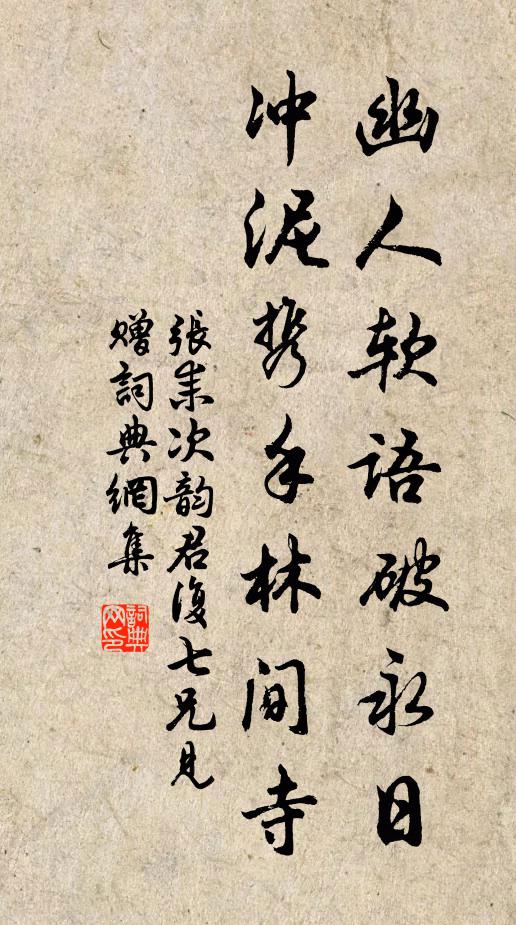 幽人软语破永日
冲泥携手林间寺
張耒次韵君復七兄見
贈詞典網集
詞典網印